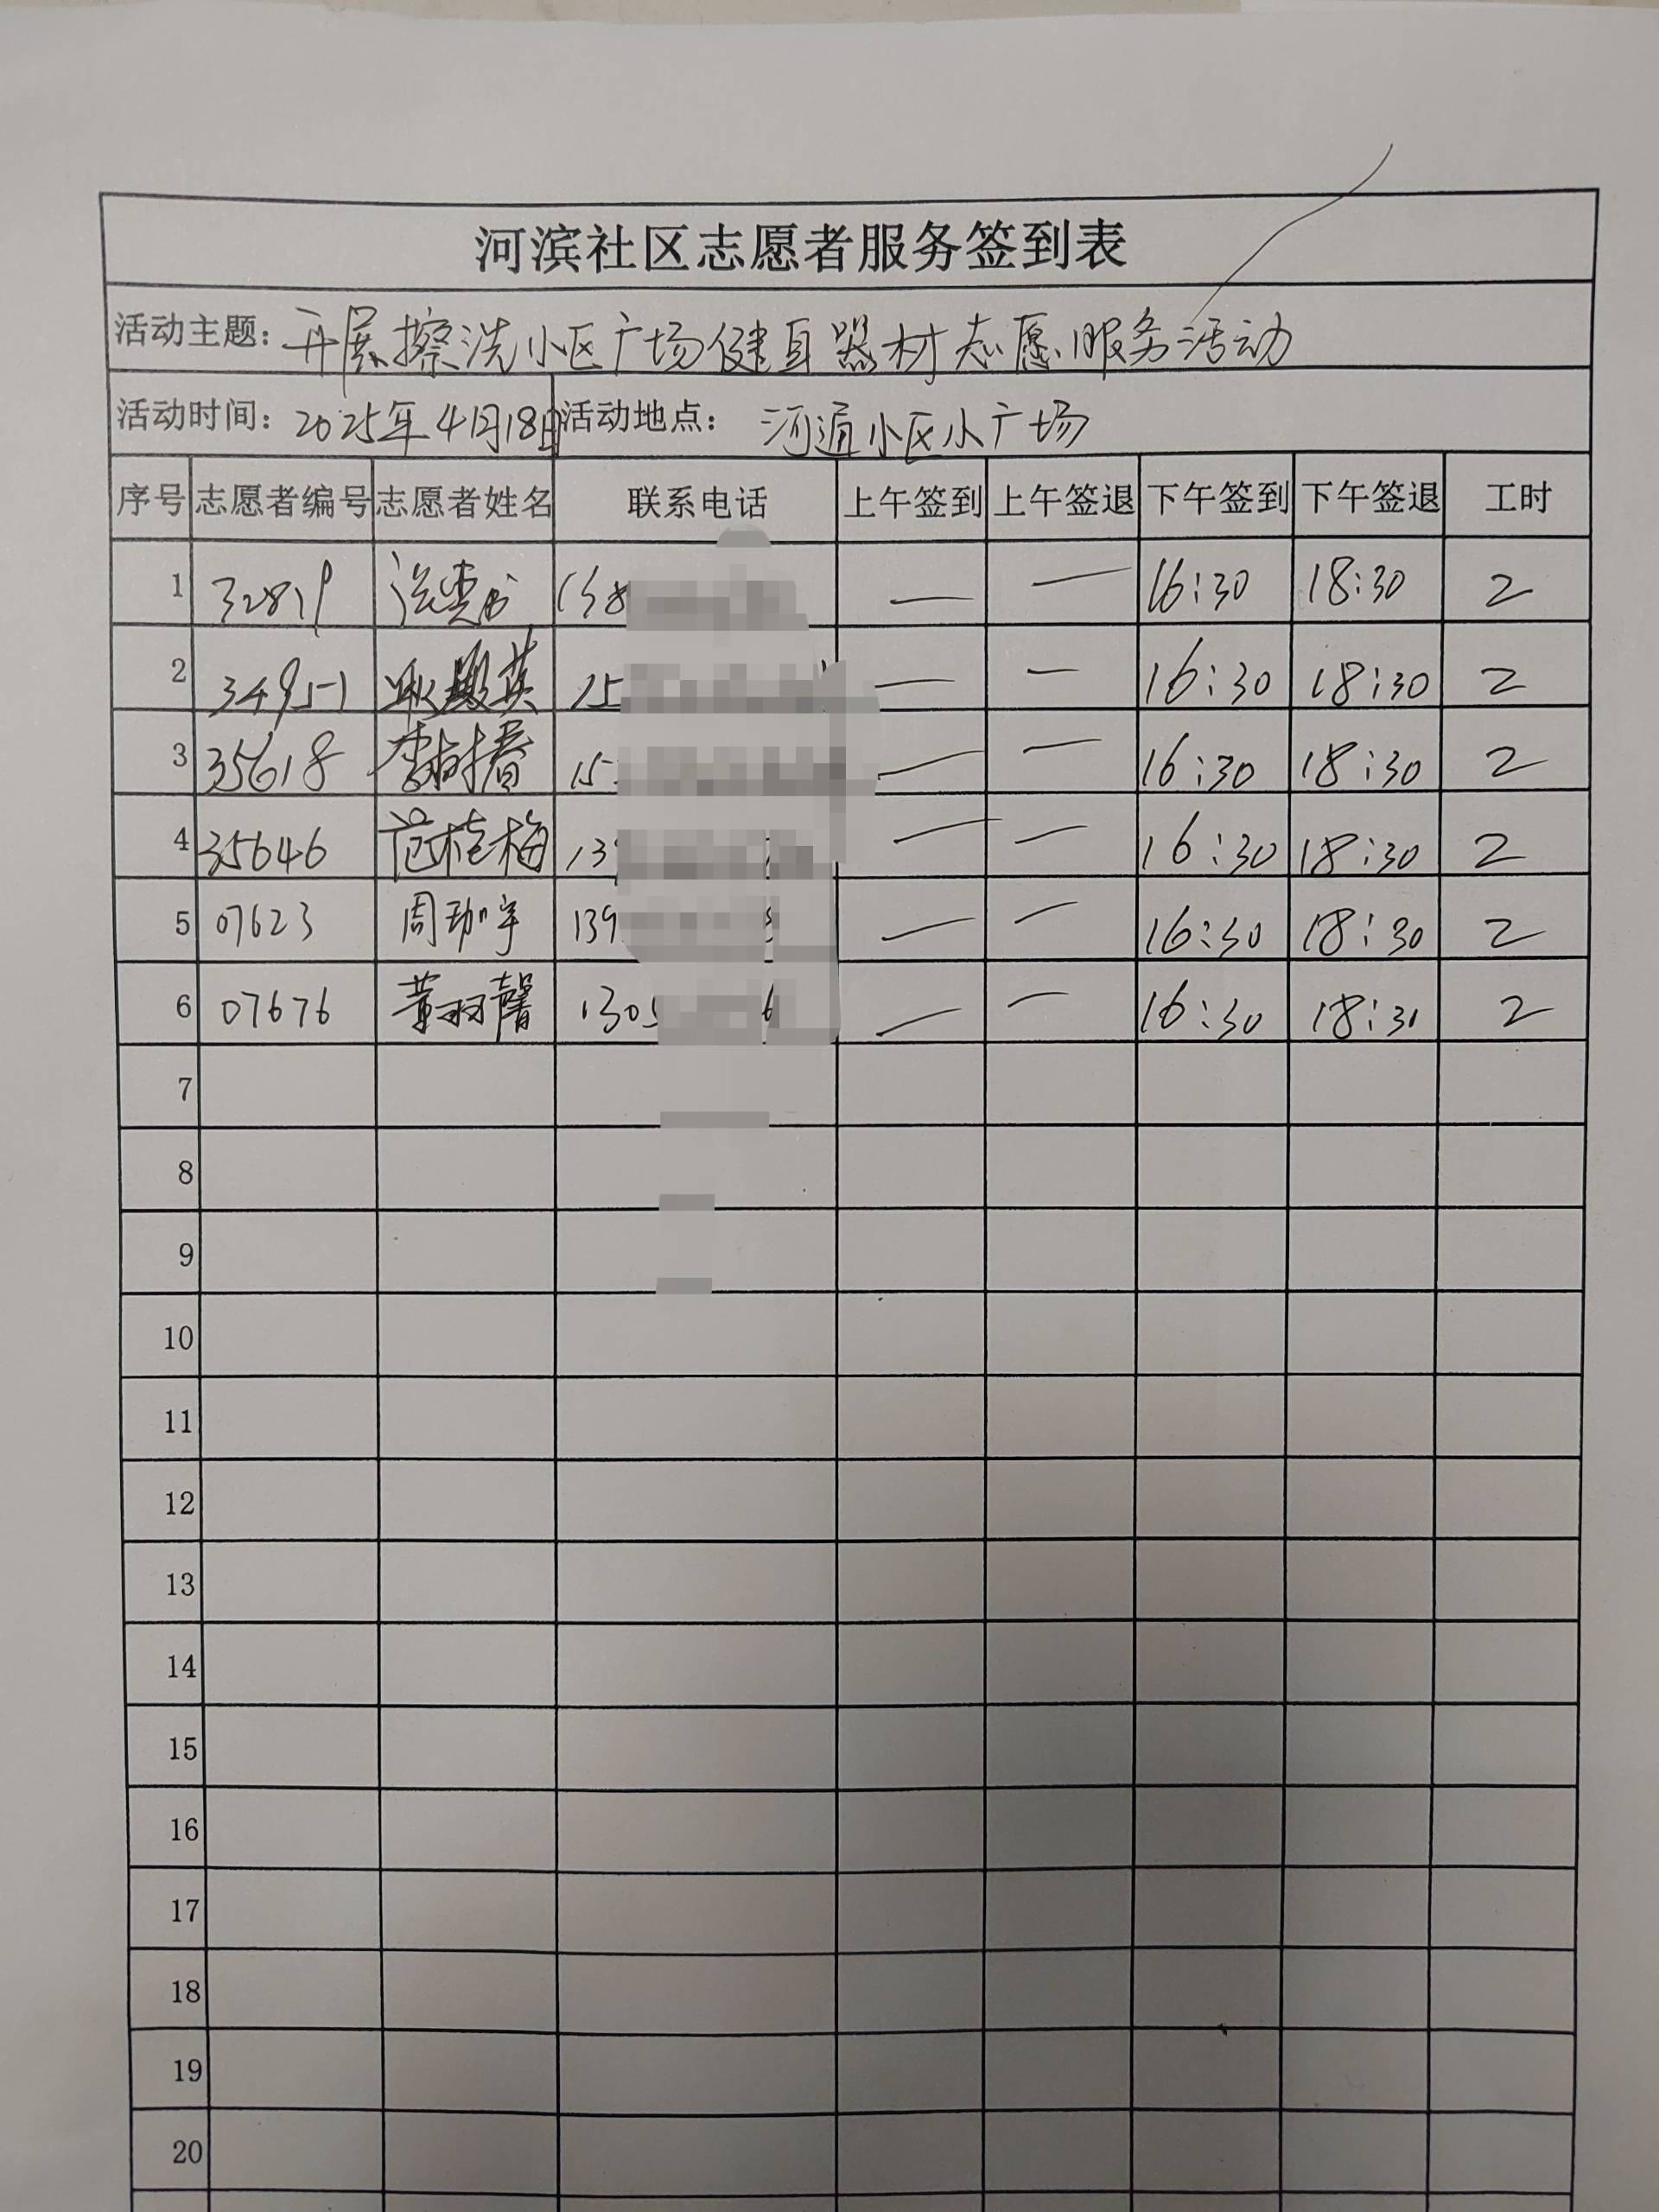 河滨社区志愿者服务签到表
活动主题：开展擦洗小区广场健身器材志愿服务活动
活动时间：2025年4月18日 活动地点： 河道小区小广场
序号 志愿者编号 志愿者姓名 联系电话 上午签到 上午签退 下午签到 下午签退 工时
1 32819 — — 16:30 18:30 2
2 34951 英 15 — — 16:30 18:30 2
3 35618 李树春 15 — — 16:30 18:30 2
4 35646 范桂梅 13 — — 16:30 18:30 2
5 07623 周珈宇 139 — — 16:30 18:30 2
6 07676 黄羽馨 1305 6 — — 16:30 18:30 2
7
8
9
10
11
12
13
14
15
16
17
18
19
20